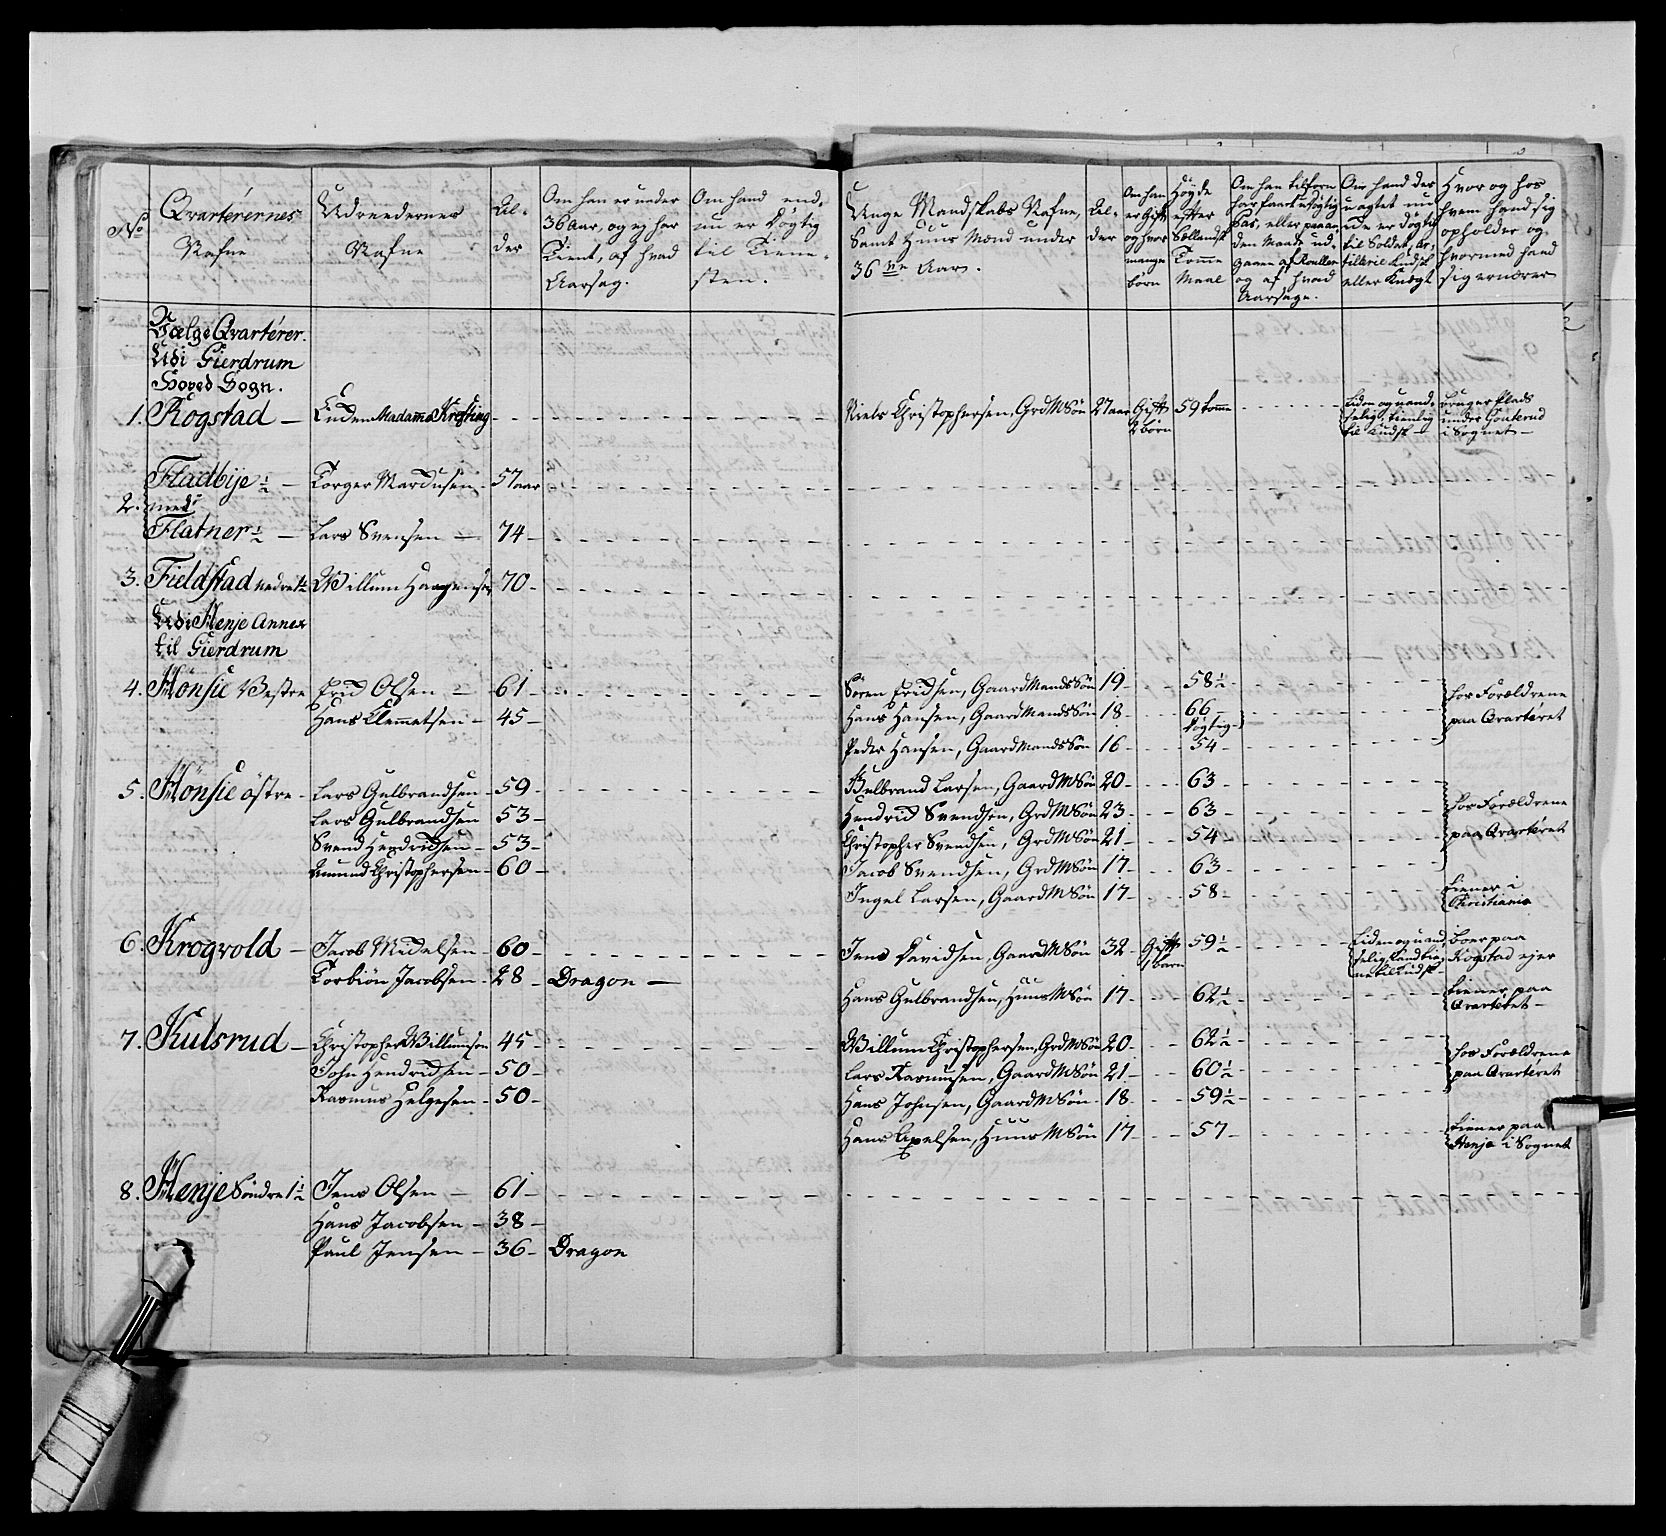 No
Qvarterernes
Nafne
Udreedernes
Nafne
Al-
der
Om han er under
36 Aar, og ej har
Tient, af hvad
Aarsag.
Om hand end-
nu er Døgtig
til Tiene-
sten.
Unge Mandskabs Nafne,
Samt Huus Mænd under
36 ve Aar.
Al-
der
Om han
er Gift
og hvor
mange
børn
Høyde
efter
Sællandsk
Tomme
Maal
Om han tilforn
har faaet
Pas, eller paa an-
den Maade ud-
gaaen af Roullen
og af hvad
Aarsage.
Om hand der
uagtet nu
er døgtig
til Soldat, Ar-
tillerie Kudsk
eller Knægt
Hvor og hos
hvem hand sig
opholder og
hvormed hand
sig ernærer
Følge Qvarterer
Udi Gierdrum
Hoved Sogn.
1. Rogstad — Enken Madamme Krefting
Niels Christophersen, Grd M Søn 27 aar Gift 2 børn 59 tomme
Liden og uand-
selig, tienlig
til Kudsk —
bruger Plads
under
i Sognet —
Fladbÿe ½ — Torger Mardusen 57 aar
2. med
Flatner ½ — Lars Svensen — 74 —
3. Fieldstad nedre ½ Willum Haagensen 70 —
Udi Henje Annex
til Gierdrum
4. Hønsie Vestre Erid Olsen — 61
Søren Eridsen, Gaard Mands Søn 19 — 58½
hos Forældrene
paa Qvarteret
Hans Clemmetsen — 45 —
Hans Hansen, Gaard Mands Søn 18 — 66 —
døgtig
Peder Hansen, Gaard Mands Søn 16 — 54 —
5. Hønsie østre — Lars Gulbrandsen — 59 —
Gulbrand Larsen, Gaard M Søn 20 — 63 —
Lars Gulbrandsen 53 —
Hendrid Svendsen, Grd M Søn 23 — 63 —
hos Forældrene
paa Qvarteret
Svend Hendridsen — 53 —
Christopher Svendsen, Grd M Søn 21 — 54 —
Amund Christophersen — 60 —
Jacob Svendsen, Grd M Søn 17 — 63 —
Ingel Larsen, Gaard M Søn 17 — 58 —
tiener i
Christiania
6. Krogvold — Jacob Midelsen — 60 —
Jens Davidsen, Gaard M Søn 32 — Gift 1 barn 59½
Liden og uand-
selig
til Kudsk
boer paa
Rogstad ejer
Torbiön Jacobsen — 28 — Dragon —
Hans Gulbrandsen, Huus M Søn 17 — 62½
tiener paa
Qvarteret —
7. Kulsrud — Christopher Willumsen 45 —
Willum Christophersen, Grd M Søn 20 — 62½
hos Forældrene
paa Qvarteret
John Hendridsen — 50 —
Lars Rasmusen, Gaard M Søn 21 — 60½
Rasmus Helgesen — 50 —
Hans Johnsen, Gaard M Søn — 18 — 59½
Hans Axelsen, Huus M Søn 17 — 57 —
tiener paa
Henje i Sognet
8. Henje Søndre 1½ Jens Olsen — 61 —
Hans Jacobsen — 38 —
Paul Jensen — 36 — Dragon